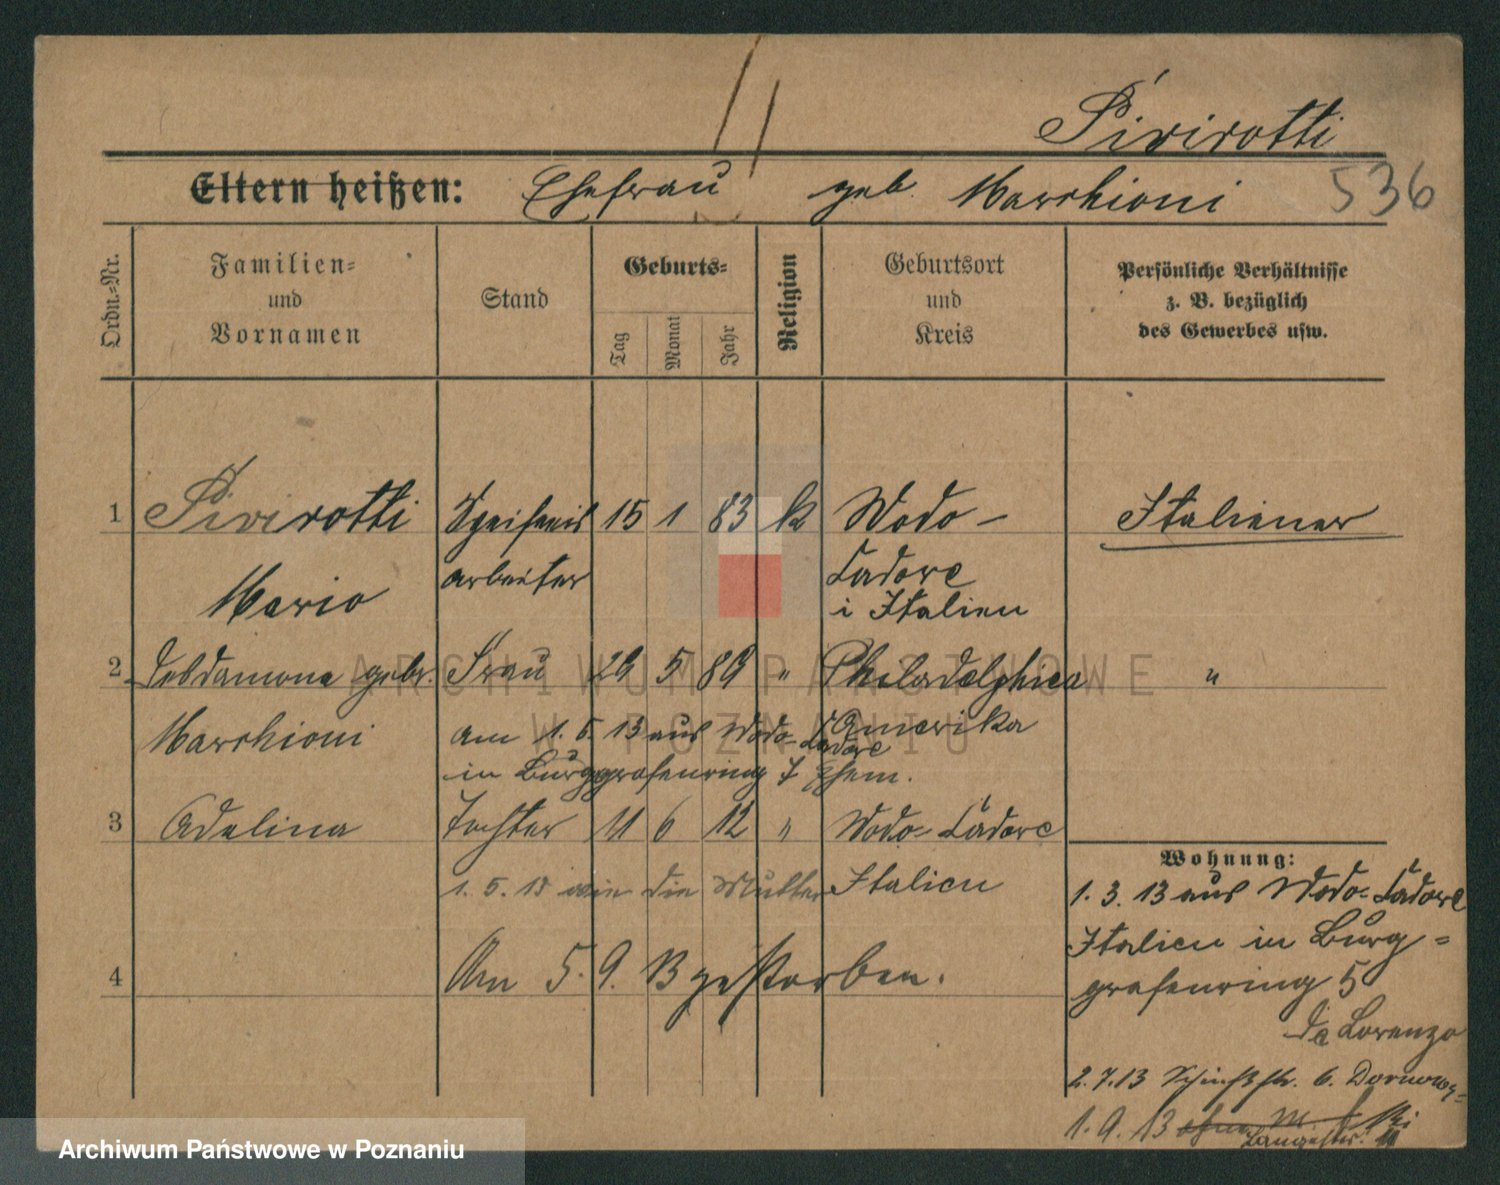 Pivirotti
Eltern heißen: Ehefrau geb. Marchioni 536
Ordn.-Nr.
Familien-
und
Vornamen
Stand
Geburts-
Tag
Monat
Jahr
Religion
Geburtsort
und
Kreis
Persönliche Verhältnisse
z. B. bezüglich
des Gewerbes usw.
1 Pivirotti 15 1 83 k Vodo- Italiener
arbeiter Cadore
Mario i Italien
2 Desdamona geb. Frau 29 5 89 " Philadelphiea "
Marchioni am 1. 5. 13 aus Vodo-Cadore Amerika
in Burggrafenring 7 Ehem.
3 Adelina Tochter 11 6 12 " Vodo-Cadore
1. 5. 13 wie die Mutter Italien
4 Am 5. 9. 13 gestorben.
Wohnung:
1. 3. 13 aus Vodo-Cadore
Italien in Burg-
grafenring 5
de Lorenzo
2. 7. 13 6.
1. 9. 13
ARCHIWUM PAŃSTWOWE
W POZNANIU
Archiwum Państwowe w Poznaniu